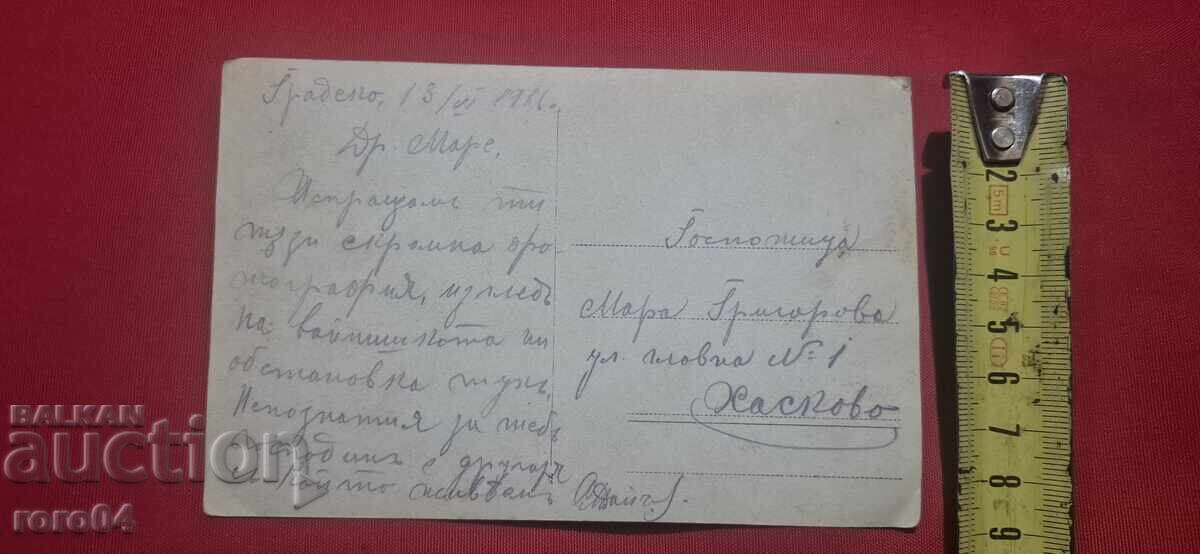 Градско, 13/VI 1916.
Др. Маре,
Испращамъ ти
тъзи скромна фо
тография, изгледъ
на войнишката ни
обстановка тукъ.
Непознатия за тебъ
господинъ е другарь
съ който живѣемъ
Госпожица
Мара Григорова
ул. главна № 1
Хасково
BALKAN
auction
roro04
5m
2
3
4
5
6
7
8
9